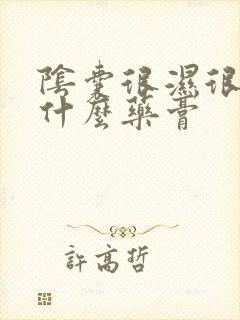 陰囊很濕很
什麼藥膏
許高哲